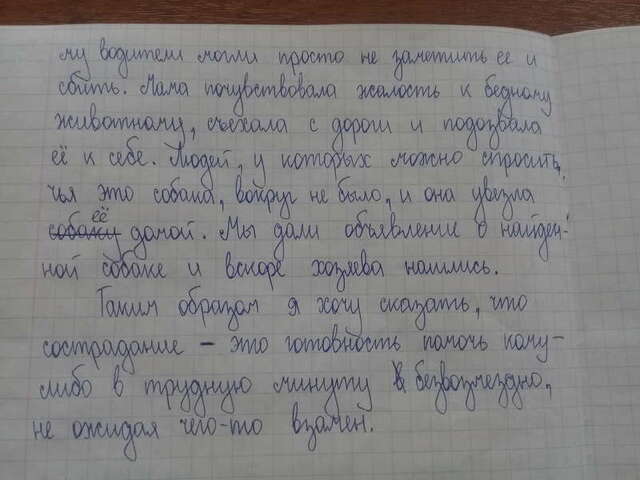 му водители могли просто не заметить её и
сбить. Мама почувствовала жалость к бедному
животному, съехала с дороги и подозвала
её к себе. Людей, у которых можно спросить,
чья это собака, вокруг не было, и она увезла
собаку её домой. Мы дали объявление о найден-
ной собаке и вскоре хозяева нашлись.
Таким образом я хочу сказать, что
сострадание – это готовность помочь кому-
либо в трудную минуту безвозмездно,
не ожидая чего-то взамен.